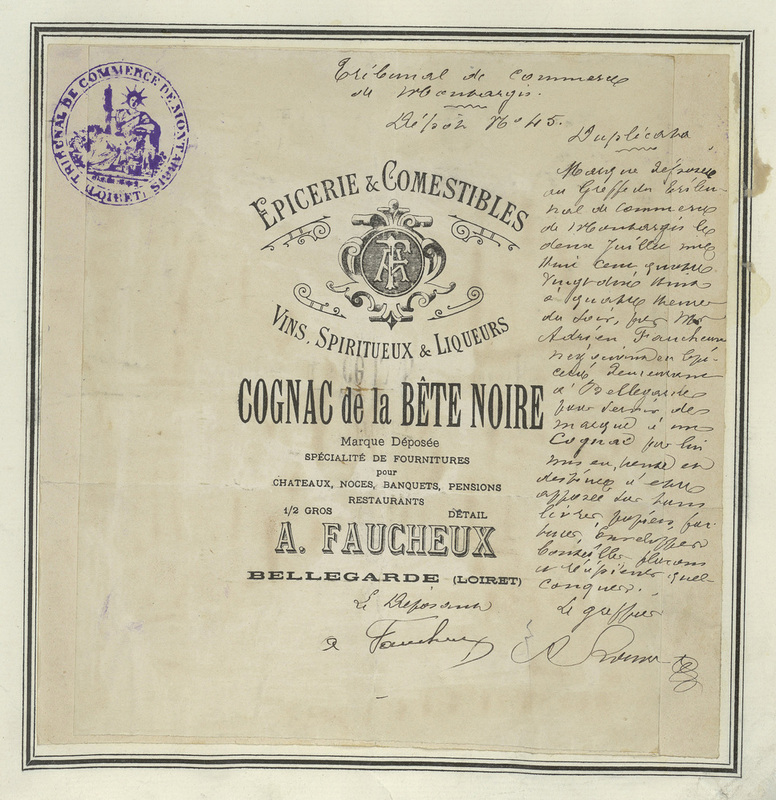 Tribunal de Commerce
de Montargis.
Dépôt No 45.
TRIBUNAL DE COMMERCE DE MONTARGIS
(LOIRET)
EPICERIE & COMESTIBLES
AF
VINS, SPIRITUEUX & LIQUEURS
COGNAC de la BÊTE NOIRE
Marque Déposée
SPÉCIALITÉ DE FOURNITURES
pour
CHATEAUX, NOCES, BANQUETS, PENSIONS
RESTAURANTS
1/2 GROS DÉTAIL
A. FAUCHEUX
BELLEGARDE (LOIRET)
Le Déposant
a Faucheux
Duplicata
Marque déposée
au Greffe du Tribu-
nal de Commerce
de Montargis le
deux Juillet mil
huit cent quatre
vingt dix huit
à quatre heures
du soir, par Mr
Adrien Faucheux
négociant en Epi-
cerie demeurant
à Bellegarde
pour servir de
marque à un
Cognac par lui
mis en vente et
destinée à être
apposée sur tous
livres, papiers, fac-
tures, enveloppes
bouteilles flacons
et récipients quel-
conques.
Le greffier